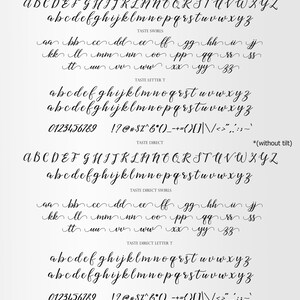 ABCDEFGHIJKLMNOPQRSTUVWXYZ
abcdefghijklmnopqrstuvwxyz
TASTE SWORLS
aa bb cc dd ee ff gg hh ii jj
kk ll mm nn oo pp qq rr ss
tt uu vv ww xx yy zz
TASTE LETTER T
abcdefghijklmnopqrstuvwxyz
abcdefghijklmnopqrstuvwxyz
0123456789
*(without tilt)
TASTE DIRECT
ABCDEFGHIJKLMNOPQRSTUVWXYZ
abcdefghijklmnopqrstuvwxyz
TASTE DIRECT SWORLS
aa bb cc dd ee ff gg hh ii jj
kk ll mm nn oo pp qq rr ss
tt uu vv ww xx yy zz
TASTE DIRECT LETTER T
abcdefghijklmnopqrstuvwxyz
abcdefghijklmnopqrstuvwxyz
0123456789